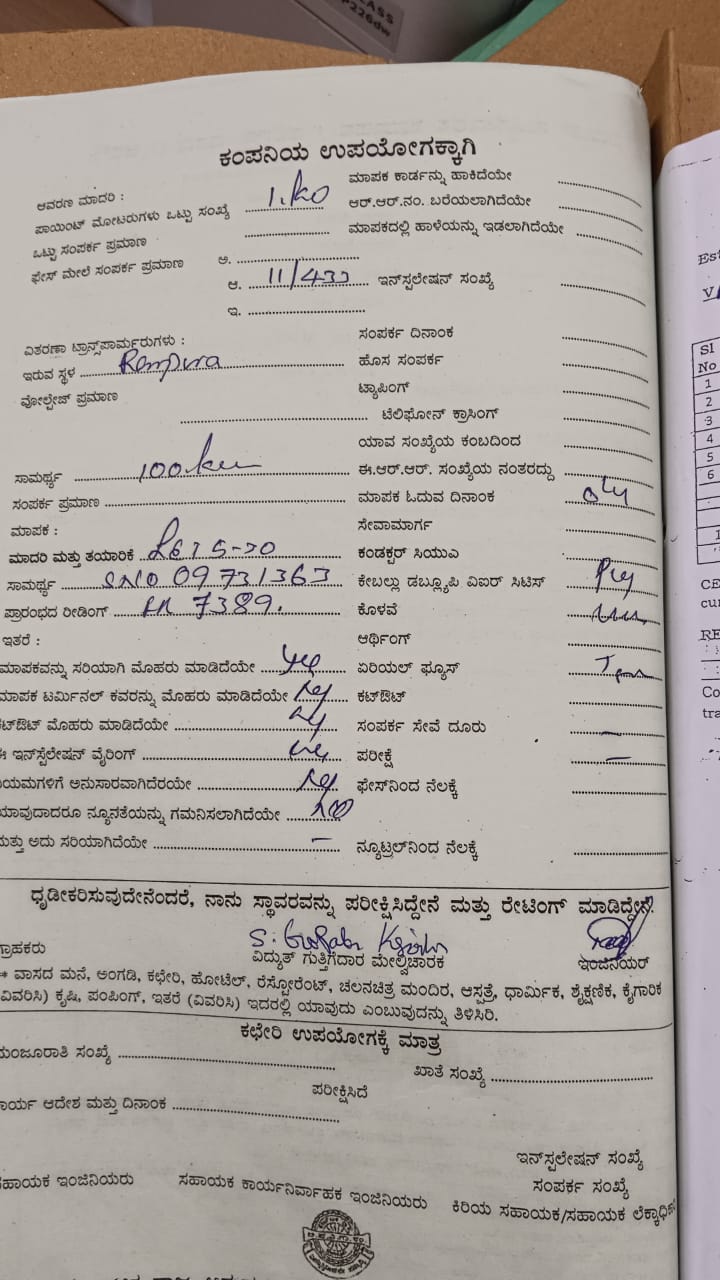 ಕಂಪನಿಯ ಉಪಯೋಗಕ್ಕಾಗಿ
ಆವರಣ ಮಾದರಿ :
ಮಾಪಕ ಕಾರ್ಡನ್ನು ಹಾಕಿದೆಯೇ
ಪಾಯಿಂಟ್ ಮೋಟರುಗಳು ಒಟ್ಟು ಸಂಖ್ಯೆ
ಆರ್.ಆರ್.ನಂ. ಬರೆಯಲಾಗಿದೆಯೇ
ಒಟ್ಟು ಸಂಪರ್ಕ ಪ್ರಮಾಣ
ಮಾಪಕದಲ್ಲಿ ಹಾಳೆಯನ್ನು ಇಡಲಾಗಿದೆಯೇ
ಫೇಸ್ ಮೇಲೆ ಸಂಪರ್ಕ ಪ್ರಮಾಣ ಅ.
ಆ. 11/433 ಇನ್‌ಸ್ಟಲೇಷನ್ ಸಂಖ್ಯೆ
ಇ.
ವಿತರಣಾ ಟ್ರಾನ್ಸ್‌ಪಾರ್ಮರುಗಳು : ಸಂಪರ್ಕ ದಿನಾಂಕ
ಇರುವ ಸ್ಥಳ Rampura ಹೊಸ ಸಂಪರ್ಕ
ವೋಲ್ಟೇಜ್ ಪ್ರಮಾಣ ಟ್ಯಾಪಿಂಗ್
ಟೆಲಿಫೋನ್ ಕ್ರಾಸಿಂಗ್
ಯಾವ ಸಂಖ್ಯೆಯ ಕಂಬದಿಂದ
ಸಾಮರ್ಥ್ಯ 100 ಈ.ಆರ್.ಆರ್. ಸಂಖ್ಯೆಯ ನಂತರದ್ದು
ಸಂಪರ್ಕ ಪ್ರಮಾಣ ಮಾಪಕ ಓದುವ ದಿನಾಂಕ
ಮಾಪಕ : ಸೇವಾಮಾರ್ಗ
ಮಾದರಿ ಮತ್ತು ತಯಾರಿಕೆ ಕಂಡಕ್ಟರ್ ಸಿಯುಎ
ಸಾಮರ್ಥ್ಯ SNO 09731363 ಕೇಬಲ್ಲು ಡಬ್ಲ್ಯೂಪಿ ವಿಐರ್ ಸಿಟಿಸ್
ಪ್ರಾರಂಭದ ರೀಡಿಂಗ್ 7389. ಕೊಳವೆ
ಇತರೆ : ಆರ್ಥಿಂಗ್
ಮಾಪಕವನ್ನು ಸರಿಯಾಗಿ ಮೊಹರು ಮಾಡಿದೆಯೇ yes ಏರಿಯಲ್ ಫ್ಯೂಸ್
ಮಾಪಕ ಟರ್ಮಿನಲ್ ಕವರನ್ನು ಮೊಹರು ಮಾಡಿದೆಯೇ ಕಟ್‌ಔಟ್
ಕಟ್‌ಔಟ್ ಮೊಹರು ಮಾಡಿದೆಯೇ ಸಂಪರ್ಕ ಸೇವೆ ದೂರು
ಈ ಇನ್‌ಸ್ಟಲೇಷನ್ ವೈರಿಂಗ್ ಪರೀಕ್ಷೆ
ಯಮಗಳಿಗೆ ಅನುಸಾರವಾಗಿದೆರಯೇ ಫೇಸ್‌ನಿಂದ ನೆಲಕ್ಕೆ
ಯಾವುದಾದರೂ ನ್ಯೂನತೆಯನ್ನು ಗಮನಿಸಲಾಗಿದೆಯೇ
ಮತ್ತು ಅದು ಸರಿಯಾಗಿದೆಯೇ ನ್ಯೂಟ್ರಲ್‌ನಿಂದ ನೆಲಕ್ಕೆ
ಧೃಡೀಕರಿಸುವುದೇನೆಂದರೆ, ನಾನು ಸ್ಥಾವರವನ್ನು ಪರೀಕ್ಷಿಸಿದ್ದೇನೆ ಮತ್ತು ರೇಟಿಂಗ್ ಮಾಡಿದ್ದೇನೆ.
ಗ್ರಾಹಕರು ವಿದ್ಯುತ್ ಗುತ್ತಿಗೆದಾರ ಮೇಲ್ವಿಚಾರಕ ಇಂಜಿನಿಯರ್
* ವಾಸದ ಮನೆ, ಅಂಗಡಿ, ಕಛೇರಿ, ಹೋಟೆಲ್, ರೆಸ್ಟೋರೆಂಟ್, ಚಲನಚಿತ್ರ ಮಂದಿರ, ಆಸ್ಪತ್ರೆ, ಧಾರ್ಮಿಕ, ಶೈಕ್ಷಣಿಕ, ಕೈಗಾರಿಕ
(ವಿವರಿಸಿ) ಕೃಷಿ, ಪಂಪಿಂಗ್, ಇತರೆ (ವಿವರಿಸಿ) ಇದರಲ್ಲಿ ಯಾವುದು ಎಂಬುವುದನ್ನು ತಿಳಿಸಿರಿ.
ಕಛೇರಿ ಉಪಯೋಗಕ್ಕೆ ಮಾತ್ರ
ಮಂಜೂರಾತಿ ಸಂಖ್ಯೆ ಖಾತೆ ಸಂಖ್ಯೆ
ಪರೀಕ್ಷಿಸಿದೆ
ಕಾರ್ಯ ಆದೇಶ ಮತ್ತು ದಿನಾಂಕ
ಇನ್‌ಸ್ಟಲೇಷನ್ ಸಂಖ್ಯೆ
ಸಂಪರ್ಕ ಸಂಖ್ಯೆ
ಸಹಾಯಕ ಇಂಜಿನಿಯರು ಸಹಾಯಕ ಕಾರ್ಯನಿರ್ವಾಹಕ ಇಂಜಿನಿಯರು ಕಿರಿಯ ಸಹಾಯಕ/ಸಹಾಯಕ
Sl
No
1
2
3
4
5
6